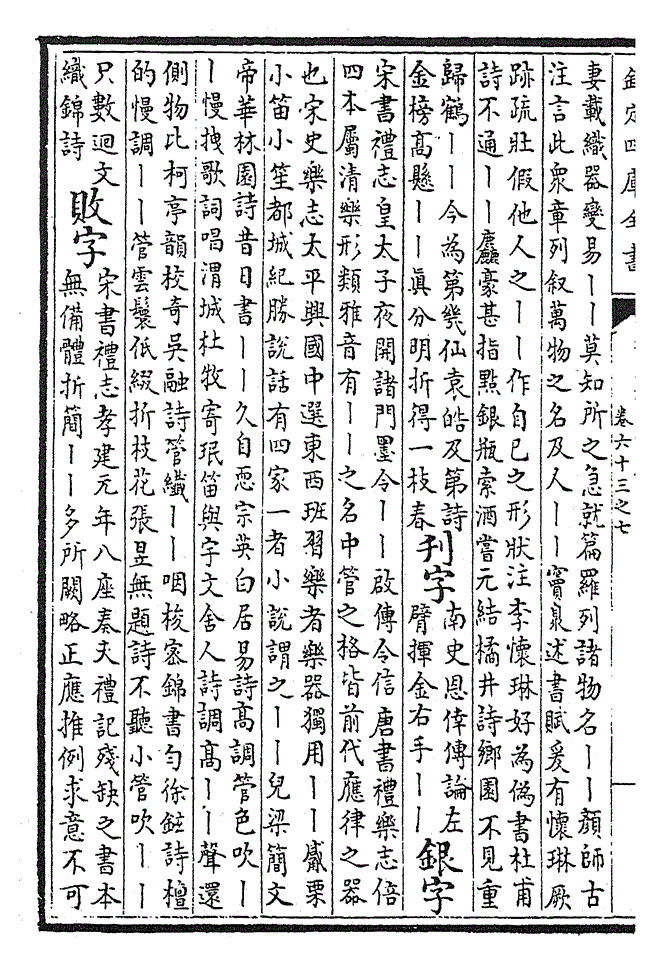 欽定四庫全書
卷六十三之七
妻載織器變易丨丨莫知所之急就篇羅列諸物名丨丨顏師古
注言此衆章列叙萬物之名及人丨丨竇臮述書賦爰有懷琳厥
跡疏壯假他人之丨丨作自己之形狀注李懷琳好為偽書杜甫
詩不通丨丨麤豪甚指點銀瓶索酒嘗元結橘井詩鄉園不見重
歸鶴丨丨今為第幾仙袁皓及第詩
金榜高懸丨丨真分明折得一枝春
刊字
南史恩倖傳論左
臂揮金右手丨丨
銀字
宋書禮志皇太子夜開諸門墨令丨丨啟傳令信唐書禮樂志倍
四本屬清樂形類雅音有丨丨之名中管之格皆前代應律之器
也宋史樂志太平興國中選東西班習樂者樂器獨用丨丨觱栗
小笛小笙都城紀勝說話有四家一者小說謂之丨丨兒梁簡文
帝華林園詩昔日書丨丨久自恧宗英白居易詩高調管色吹丨
丨慢拽歌詞唱渭城杜牧寄珉笛與宇文舍人詩調高丨丨聲還
側物比柯亭韻校奇吳融詩管纖丨丨咽梭密錦書勻徐鉉詩檀
的慢調丨丨管雲鬟低綴折枝花張昱無題詩不聽小管吹丨丨
只數迴文
織錦詩
敗字
宋書禮志孝建元年八座奏夫禮記殘缺之書本
無備體折簡丨丨多所闕略正應推例求意不可